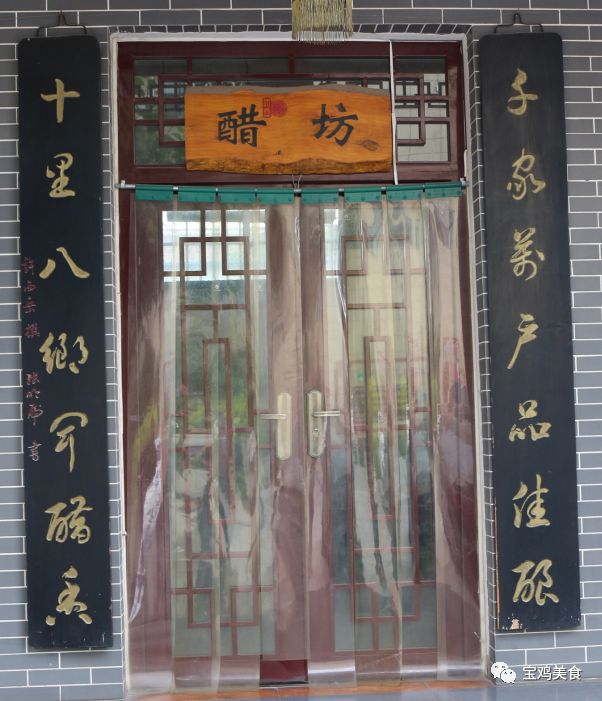 醋坊
千家萬户品佳酿
十里八鄉闻醋香
宝鸡美食